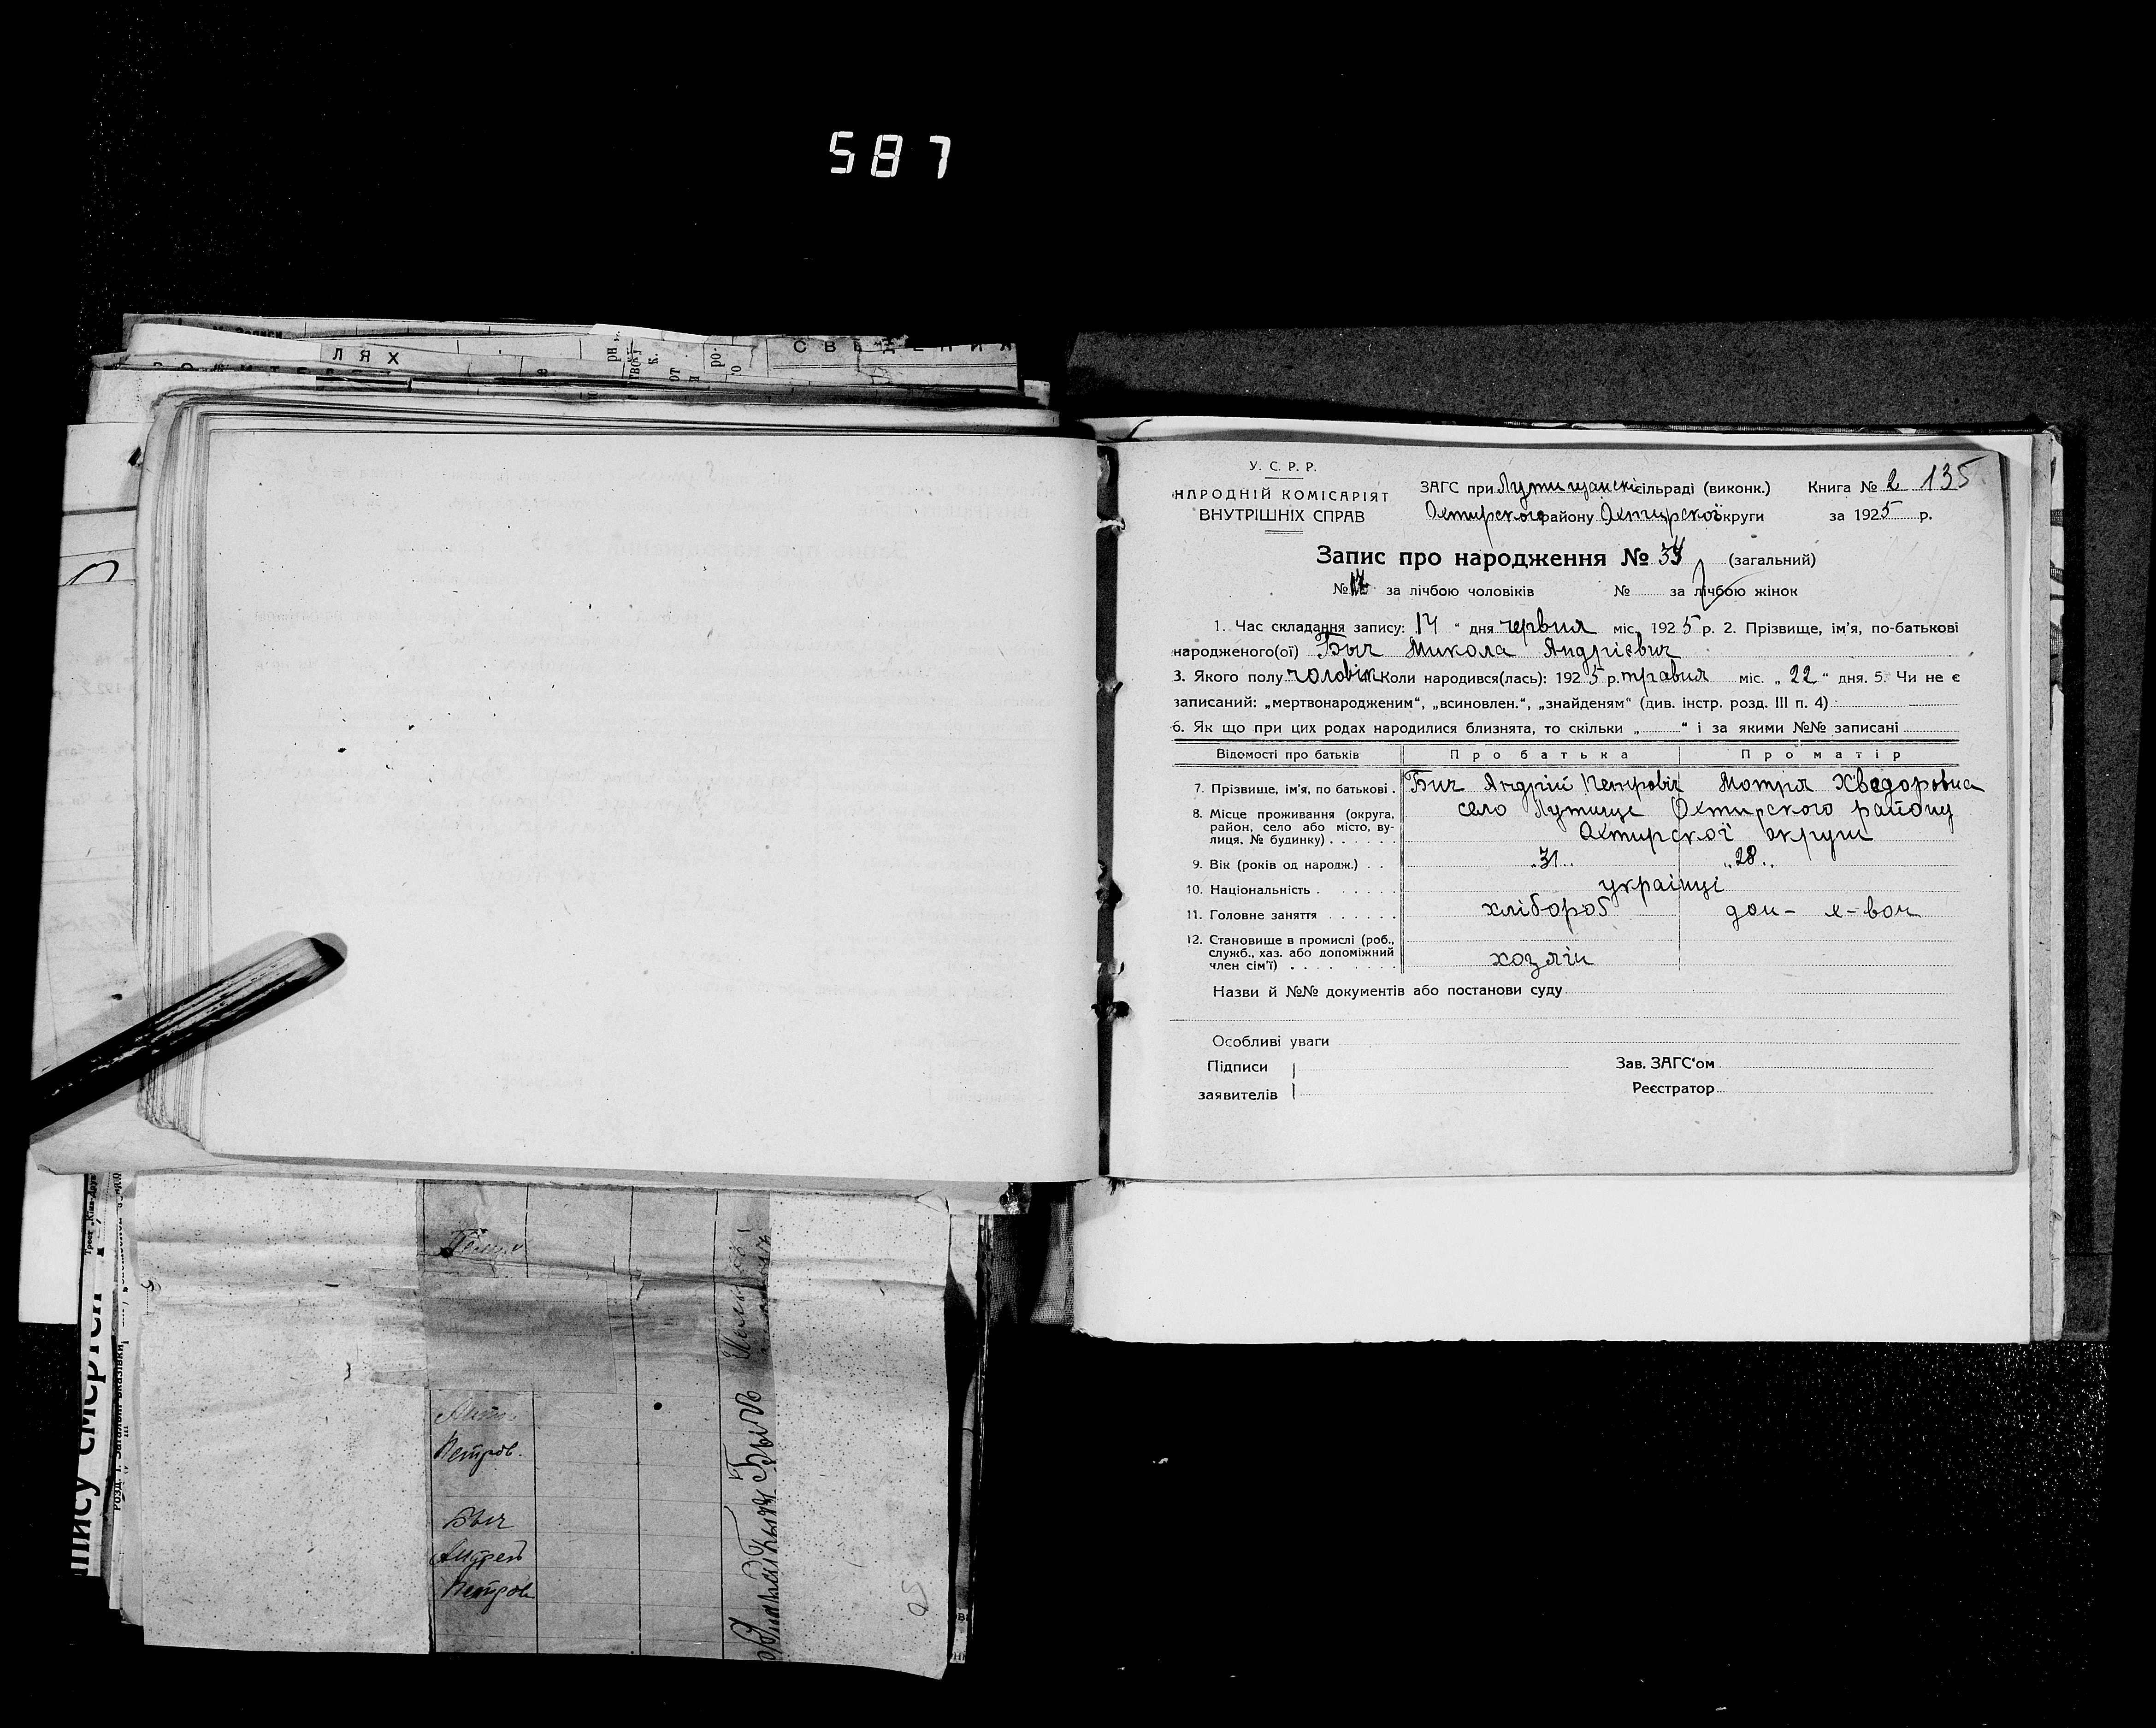 587
ЛЯХ
СВѢДЕНИЯ
У. С. Р. Р.
НАРОДНІЙ КОМІСАРІЯТ
ВНУТРІШНІХ СПРАВ
ЗАГС при Лутищанскі сільраді (виконк.)
Охтирского району Охтирскої округи
Книга № 2 135
за 1925 р.
Запис про народження № 34 (загальний)
№ за лічбою чоловіків № за лічбою жінок
1. Час складання запису: 14 “ дня червня міс. 1925 р. 2. Прізвище, ім'я, по-батькові
народженого(ої) Быч Микола Андрієвич
3. Якого полу чоловік Коли народився(лась): 1925 р. травня міс. „ 22 “ дня. 5. Чи не є
записаний: „мертвонародженим“, „всиновлен.“, „знайденям“ (див. інстр. розд. III п. 4)
6. Як що при цих родах народилися близнята, то скільки „ “ і за якими №№ записані
Відомості про батьків Про батька Про матір
7. Прізвище, ім'я, по батькові . Бич Андрій Петровіч Мотря Хведоровна
8. Місце проживання (округа, район, село або місто, вулиця, № будинку) . . . . . . село Лутище Охтирского району
Охтирскої округи
9. Вік (років од народж.) . . „31„ „28„
10. Національність . . . . . . українці
11. Головне заняття . . . . . . хлібороб дом- х-вом
12. Становище в промислі (роб., служб., хаз. або допоміжний член сім'ї) . . . . . . . . хозяїн
Назви й №№ документів або постанови суду
Особливі уваги
Підписи
заявителів
Зав. ЗАГС'ом
Реєстратор
Петров.
Быч
Андрей
Петров